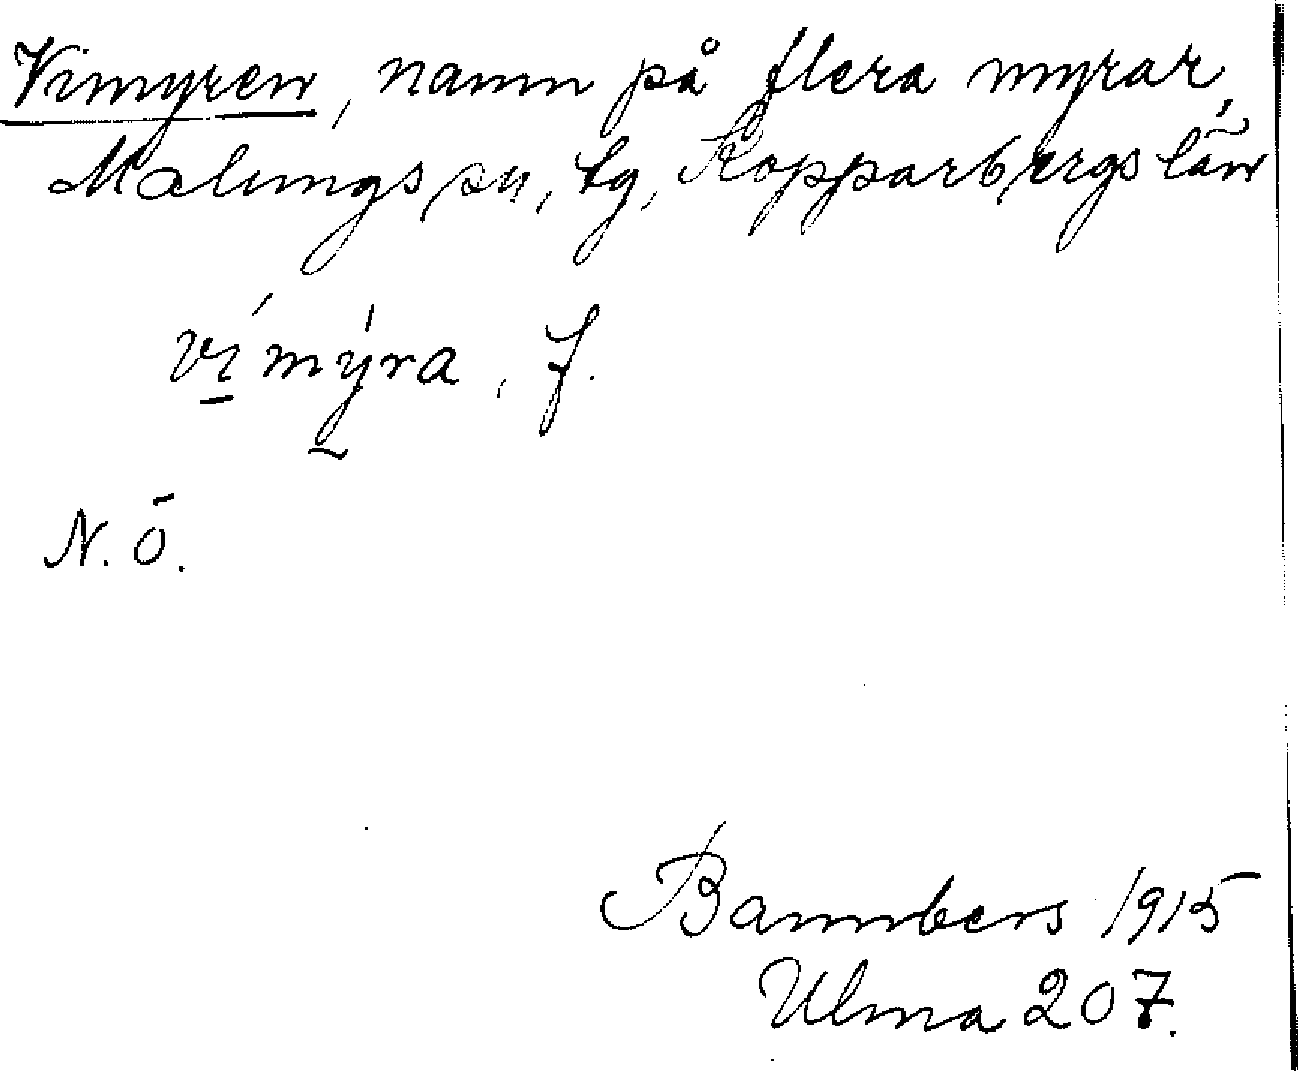 Vimyren, namn på flera myrar,
Malungs sn, tg, Kopparbergs län
vímýra, f.
N. Ö.
Bannbers 1915
Ulma 207.